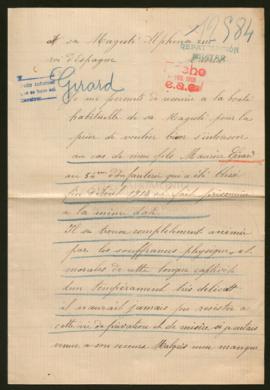 A sa Majesté Alphonse XIII
roi d'Espagne
19584
REPATRIACIÓN
MILITAR
Girard
Je me permets de recourir à la bonté
habituelle de sa Majesté pour la
prier de vouloir bien s'intéresser
au cas de mon fils Maurice Girard
au 52me d'Infanterie qui a été blessé
fin d'Août 1914 et fait prisonnier
à la même date.
Il se trouve complètement anémié
par les souffrances physiques et
morales de cette longue captivité
d'un tempérament très délicat
il n'aurait jamais pu résister à
cette vie de privations et de misère si je n'allais
venue à son secours. Malgré mon manque